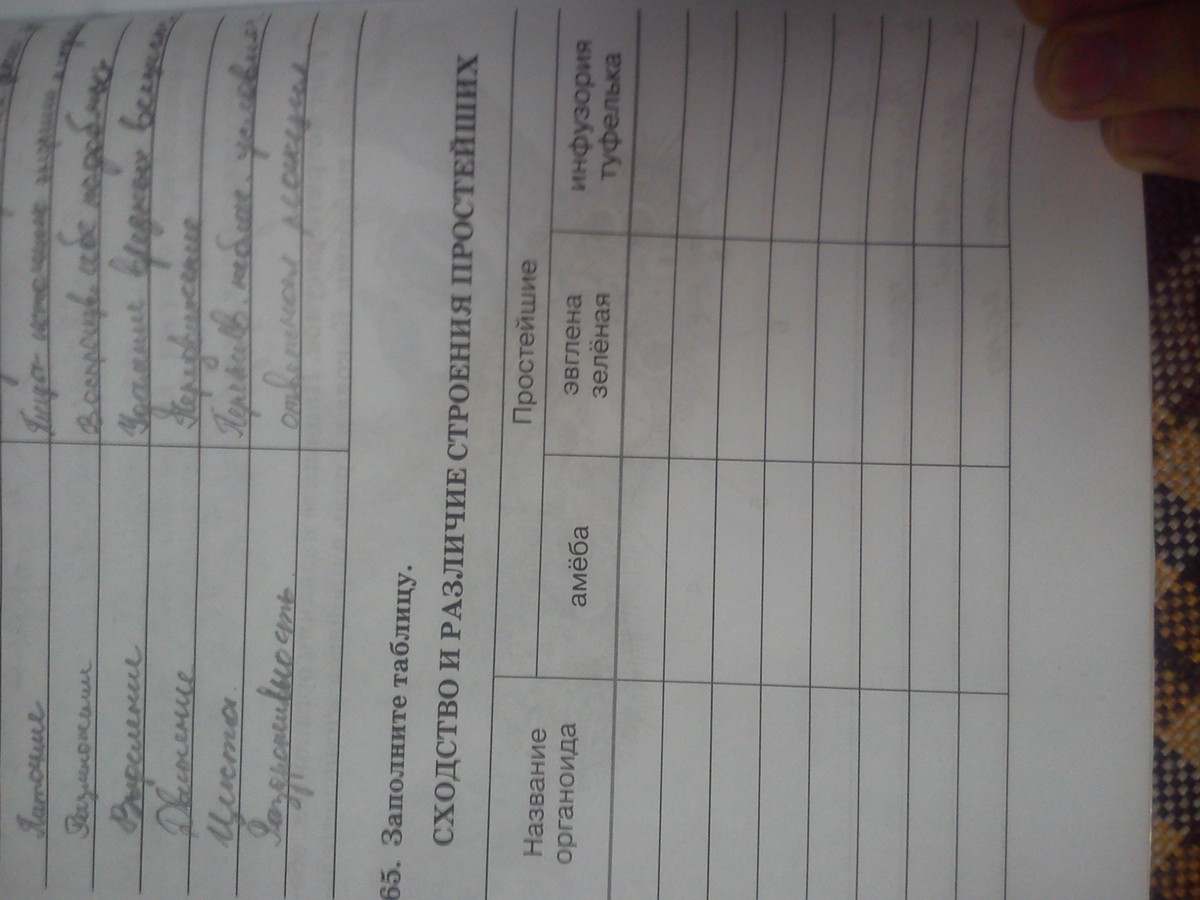 Питание
Пища - источник энергии
Размножение
Воспроизв. себе подобных
Выделение
Удаление вредных веществ
Движение
Передвижение
Циста
Переж. неблаг. условия
Раздражимость.
ответная реакция
65. Заполните таблицу.
СХОДСТВО И РАЗЛИЧИЕ СТРОЕНИЯ ПРОСТЕЙШИХ
Название
органоида
Простейшие
амёба
эвглена
зелёная
инфузория
туфелька